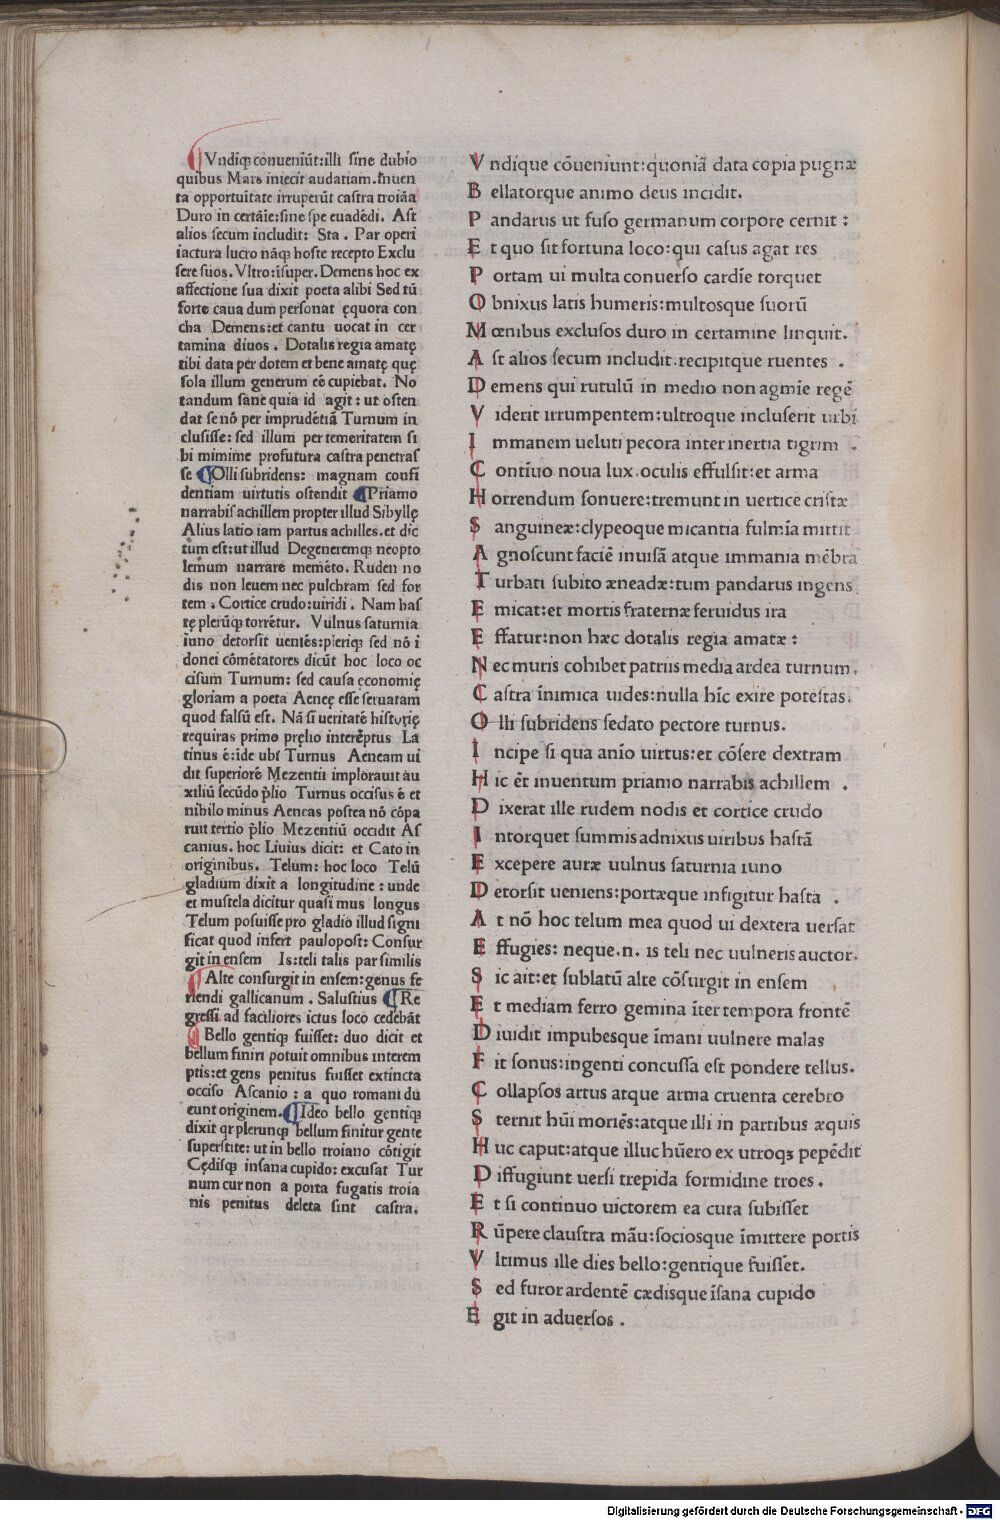 Vndiq; conueniūt:illi sine dubio
quibus Mars iniecit audatiam. Inuen
ta opportuitate irruperūt castra troiāa
Duro in certāie:sine spe euadēdi. Ast
alios secum includit: Sta. Par operi
iactura lucro nāq; hoste recepto Exclu
sere suos. Vltro:īsuper. Demens hoc ex
affectione sua dixit poeta alibi Sed tū
forte caua dum personat ęquora con
cha Demens:et cantu uocat in cer
tamina diuos. Dotalis regia amatę
tibi data per dotem et bene amatę quę
sola illum generum eē cupiebat. No
tandum sane quia id agit: ut osten
dat se nō per imprudētiā Turnum in
clusisse: sed illum per temeritatem si
bi mimime profutura castra penetras
se Olli subridens: magnam confi
dentiam uirtutis ostendit Priamo
narrabis achillem propter illud Sibyllę
Alius latio iam partus achilles. et dic
tum est:ut illud Degeneremq; neopto
lemum narrare memēto. Ruden no
dis non leuem nec pulchram sed for
tem. Cortice crudo:uiridi. Nam has
tę plerūq; torrētur. Vulnus saturnia
iuno detorsit ueniēs:pleriq; sed nō i
donei cōmētatores dicūt hoc loco oc
cisum Turnum: sed causa ęconomię
gloriam a poeta Aeneę esse seruatam
quod falsū est. Nā si ueritatē historię
requiras primo pręlio interēptus La
tinus ē:ide ubi Turnus Aeneam ui
dit superiorē Mezentii implorauit au
xiliū secūdo p̄lio Turnus occisus ē et
nihilo minus Aeneas postea nō cōpa
ruit tertio p̄lio Mezentiū occidit As
canius. hoc Liuius dicit: et Cato in
originibus. Telum: hoc loco Telū
gladium dixit a longitudine: unde
et mustela dicitur quasi mus longus
Telum posuisse pro gladio illud signi
ficat quod infert paulopost: Consur
git in ensem Is:teli talis par similis
Alte consurgit in ensem:genus fe
riendi gallicanum. Salustius Re
gressi ad faciliores ictus loco cedebāt
Bello gentiq; fuisset: duo dicit et
bellum finiri potuit omnibus interem
ptis:et gens penitus fuisset extincta
occiso Ascanio: a quo romani du
cunt originem. Ideo bello gentiq;
dixit qr plerunq; bellum finitur gente
superstite: ut in bello troiano cōtigit
Cędisq; insana cupido: excusat Tur
num cur non a porta fugatis troia
nis penitus deleta sint castra.
V ndique cōueniunt:quoniā data copia pugnæ
B ellatorque animo deus incidit.
P andarus ut fuso germanum corpore cernit:
E t quo sit fortuna loco:qui casus agat res
P ortam ui multa conuerso cardīe torquet
O bnixus latis humeris:multosque suorū
M œnibus exclusos duro in certamine linquit.
A st alios secum includit.recipitque ruentes.
D emens qui rutulū in medio non agmīe regē
V iderit irrumpentem:ultroque incluserit urbi
I mmanem ueluti pecora inter inertia tigrim.
C ontīuo noua lux oculis effulsit:et arma
H orrendum sonuere:tremunt in uertice cristæ
S anguineæ:clypeoque micantia fulmīa mittit
A gnoscunt faciē inuisā atque immania mēbra
T urbati subito æneadæ:tum pandarus ingens
E micat:et mortis fraternæ feruidus ira
E ffatur:non hæc dotalis regia amatæ:
N ec muris cohibet patriis media ardea turnum.
C astra īnimica uides:nulla hīc exire potestas.
O lli subridens sedato pectore turnus.
I ncipe si qua anīo uirtus:et cōsere dextram
H ic ēt inuentum priamo narrabis achillem.
D ixerat ille rudem nodis et cortice crudo
I ntorquet summis adnixus uiribus hastā
E xcepere auræ uulnus saturnia iuno
D etorsit ueniens:portæque infigitur hasta.
A t nō hoc telum mea quod ui dextera uersat
E ffugies: neque.n. is teli nec uulneris auctor.
S ic ait:et sublatū alte cōsurgit in ensem
E t mediam ferro gemina īter tempora frontē
D iuidit impubesque īmani uulnere malas
F it sonus:ingenti concussa est pondere tellus.
C ollapsos artus atque arma cruenta cerebro
S ternit hūi moriēs:atque illi in partibus æquis
H uc caput:atque illuc hūero ex utroq; pepēdit
D iffugiunt uersi trepida formidine troes.
E t si continuo uictorem ea cura subisset
R ūpere claustra māu:sociosque īmittere portis
V ltimus ille dies bello:gentique fuisset.
S ed furor ardentē cædisque īsana cupido
E git in aduersos.
Digitalisierung gefördert durch die Deutsche Forschungsgemeinschaft - DFG